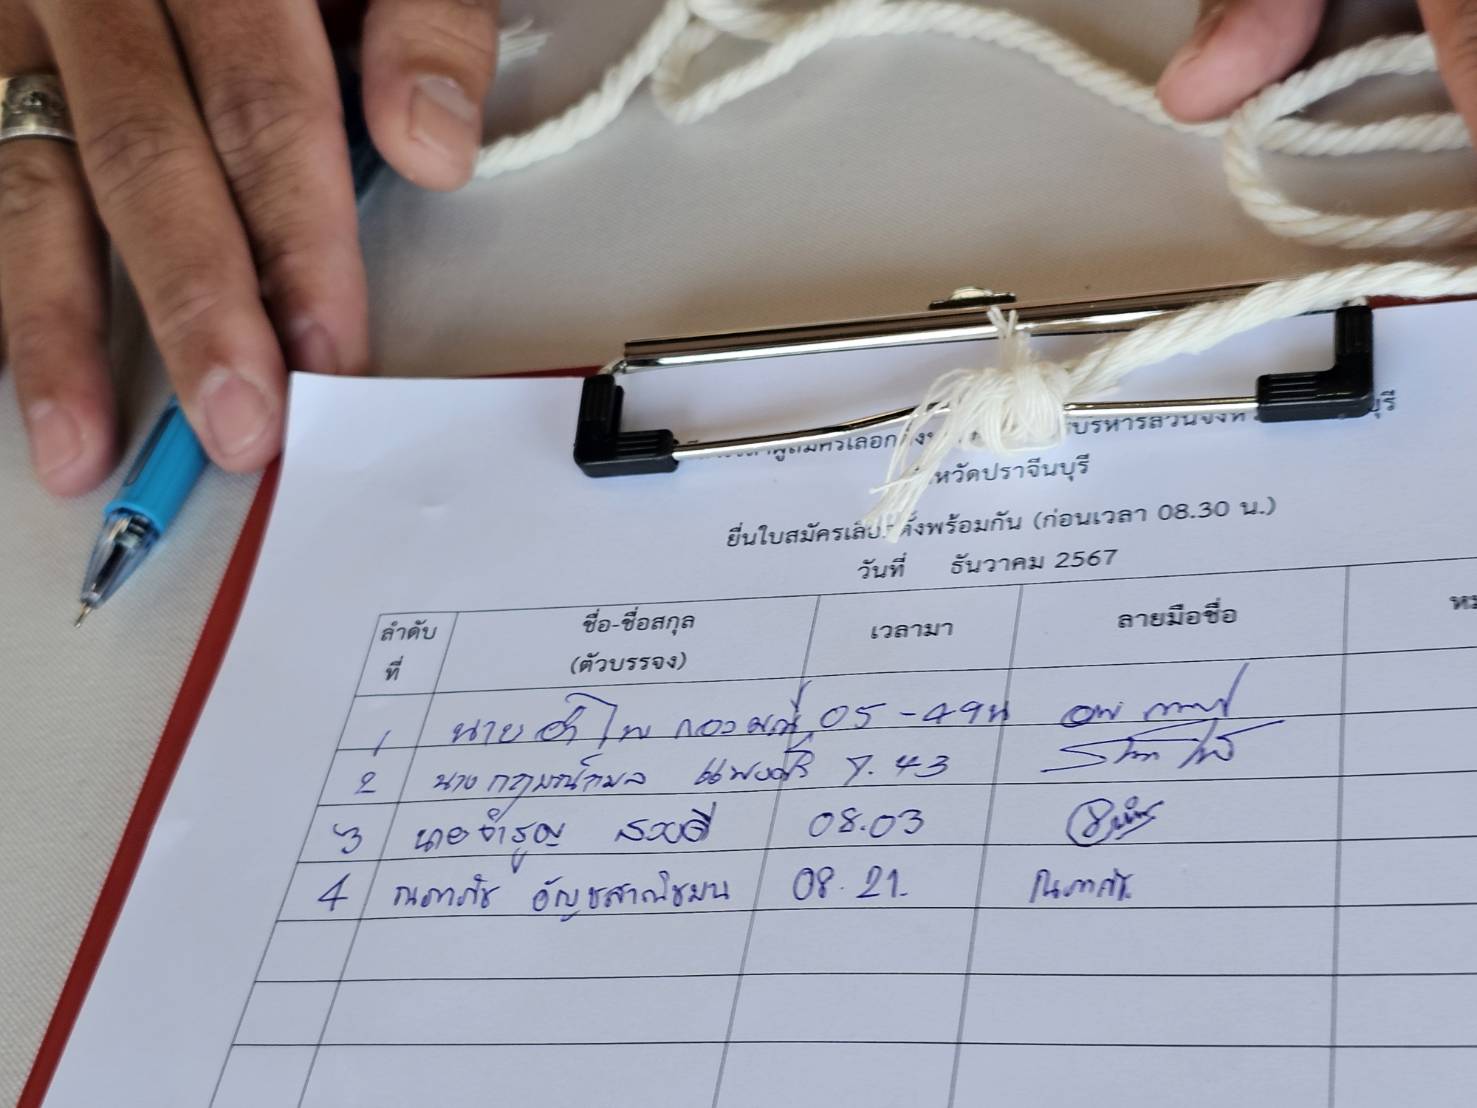 ผู้สมัครเลือกตั้ง บริหารส่วนจังห บุรี
หวัดปราจีนบุรี
ยื่นใบสมัครเลือกตั้งพร้อมกัน (ก่อนเวลา 08.30 น.)
วันที่ ธันวาคม 2567
ลำดับที่ ชื่อ-ชื่อสกุล (ตัวบรรจง) เวลามา ลายมือชื่อ
1 นาย อำไพ กองมณี 05-49น
2 นาง กฤษณ์กมล แพงศรี 7.43
3 นายจำรูญ สวยดี 08.03
4 ณภาภัช อัญชสาณิชมน 08.21. ณภาภัช